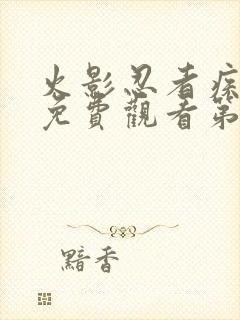 火影忍者疾
免費觀看第
黯香